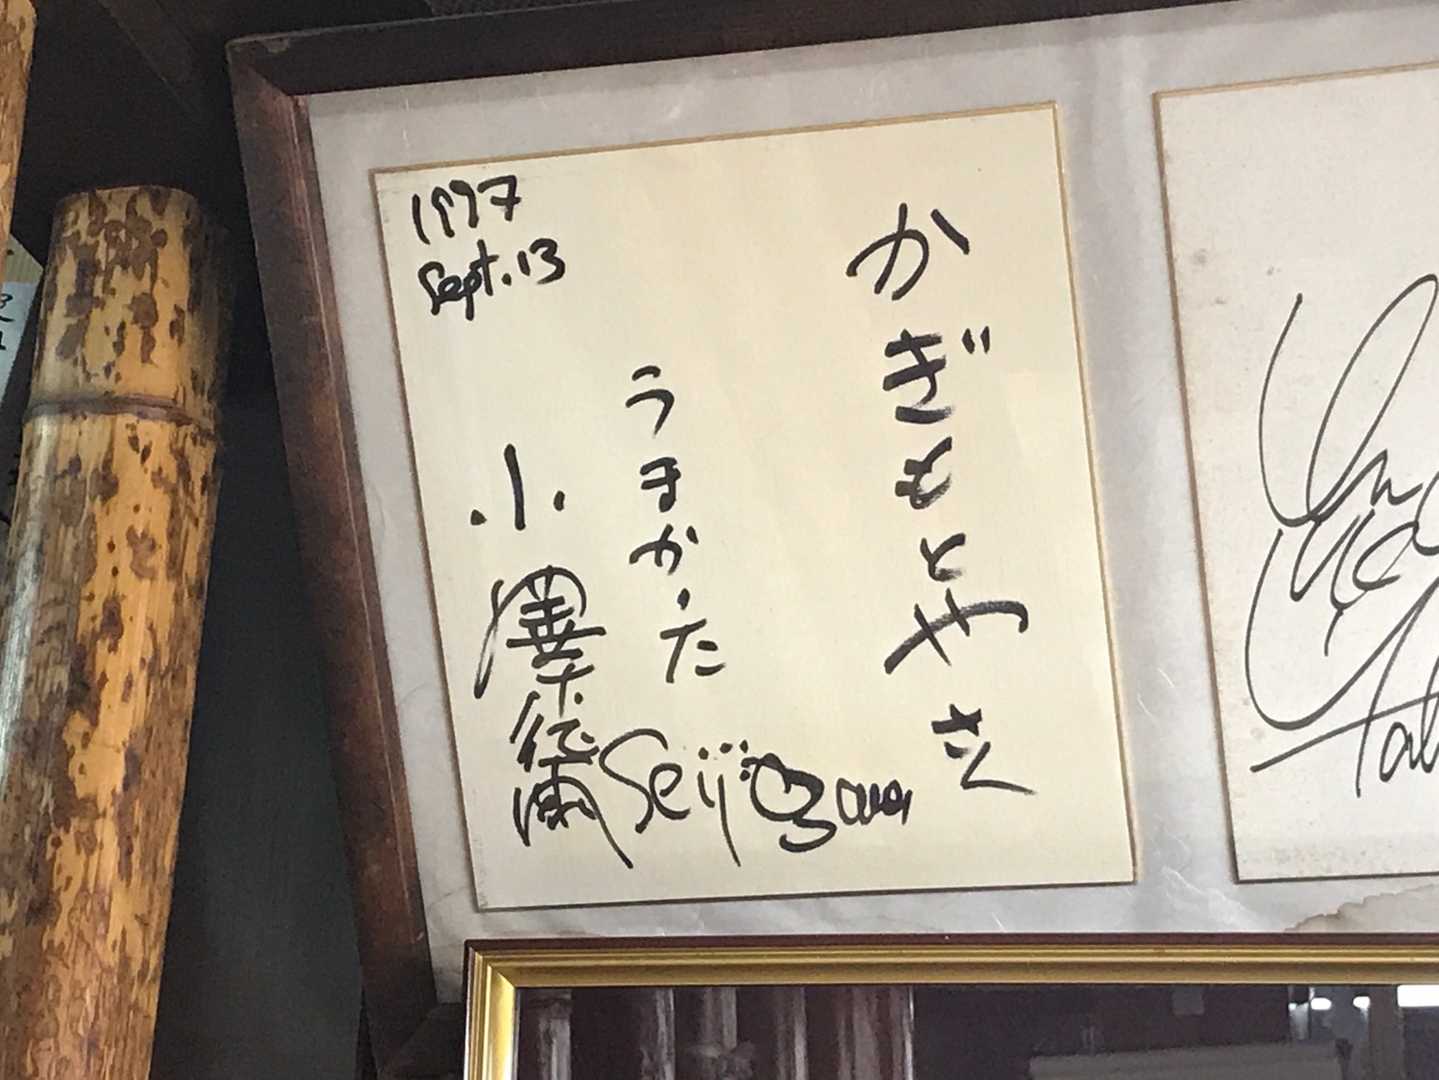 1997
Sept. 13
かぎもとやさん
うまかった
小澤征爾
Seiji Ozawa